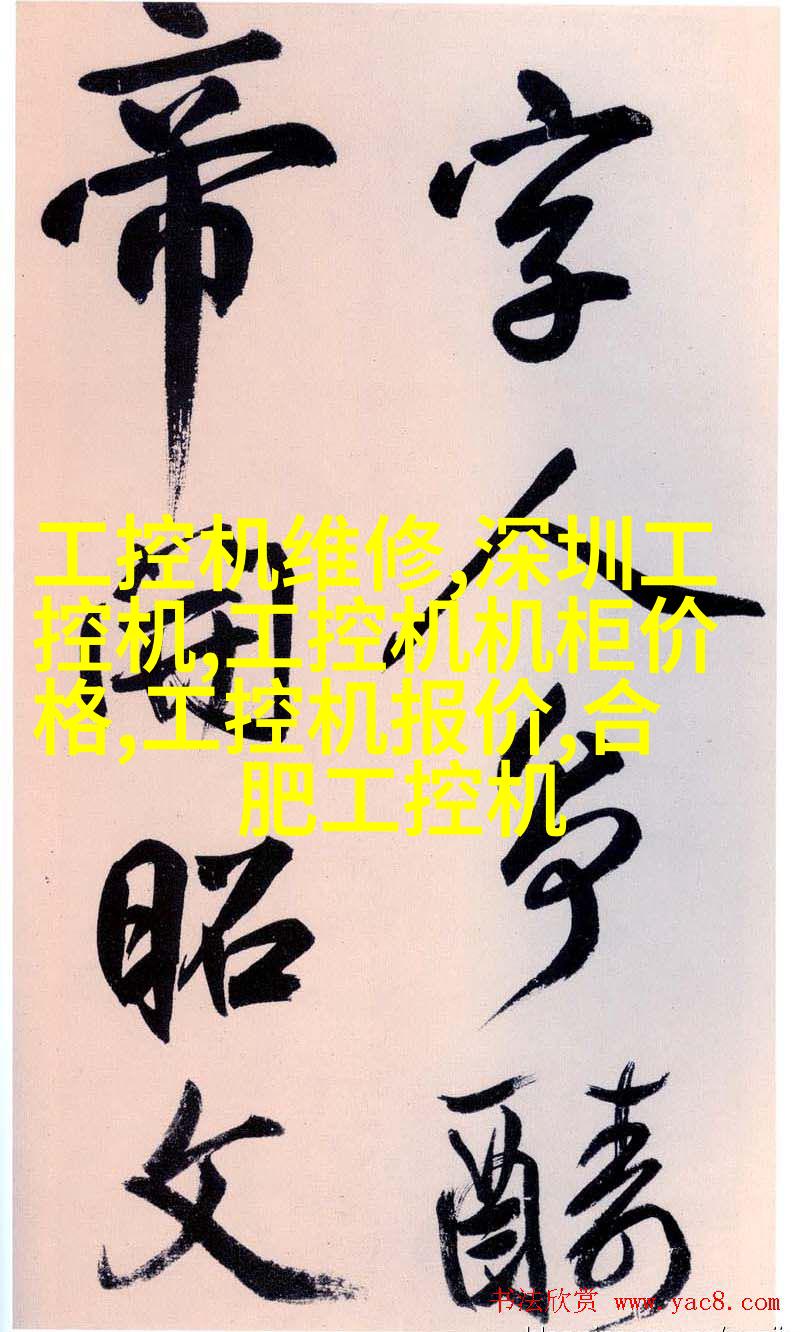 字人争酬
帝开昭文
工控机维修,深圳工
控机,工控机机柜价
格,工控机报价,合
肥工控机
书法欣赏 www.yac8.com